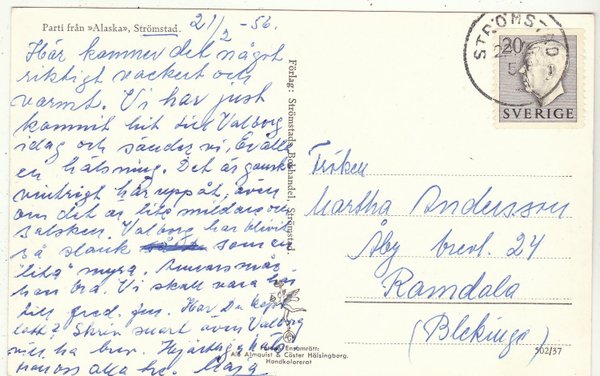 Parti från »Alaska», Strömstad.
21/2 - 56.
Här kommer det något
riktigt vackert och
varmt. Vi har just
kommit hit till Valborg
idag och sänder vi Er alla
en hälsning. Det är ganska
vintrigt här uppåt, även
om det är lite mildare och
solsken. Valborg har blivit
så slank som en
"liten" myra. Annars mår
hon bra. Vi skall vara här
till fred. Har Du köpt
Skriv snart även Valborg
vill ha brev. Hjärtliga
oss alla Maja
Förlag: Strömstads Bokhandel, Strömstad
Ensamrätt:
A/B Almquist & Cöster Hälsingborg.
Handkolorerat
STRÖMSTAD
20
SVERIGE
Fröken
Martha Andersson
Åby brevl. 24
Ramdala
(Blekinge)
502/37